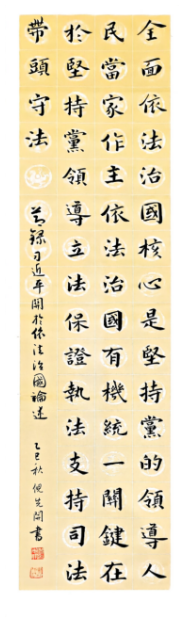 全面依法治國核心是堅持黨的領導人
民當家作主依法治國有機統一關鍵在
於堅持黨領導立法保證執法支持司法
帶頭守法
節錄习近平關於依法治國論述
乙巳秋倪先閣書